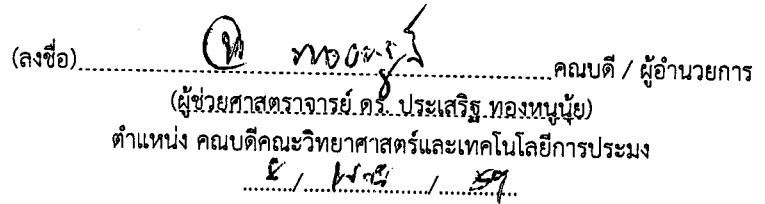 (ลงชื่อ)........................................คณบดี / ผู้อำนวยการ
(ผู้ช่วยศาสตราจารย์ ดร. ประเสริฐ ทองหนูนุ้ย)
ตำแหน่ง คณบดีคณะวิทยาศาสตร์และเทคโนโลยีการประมง
........./......................../..............